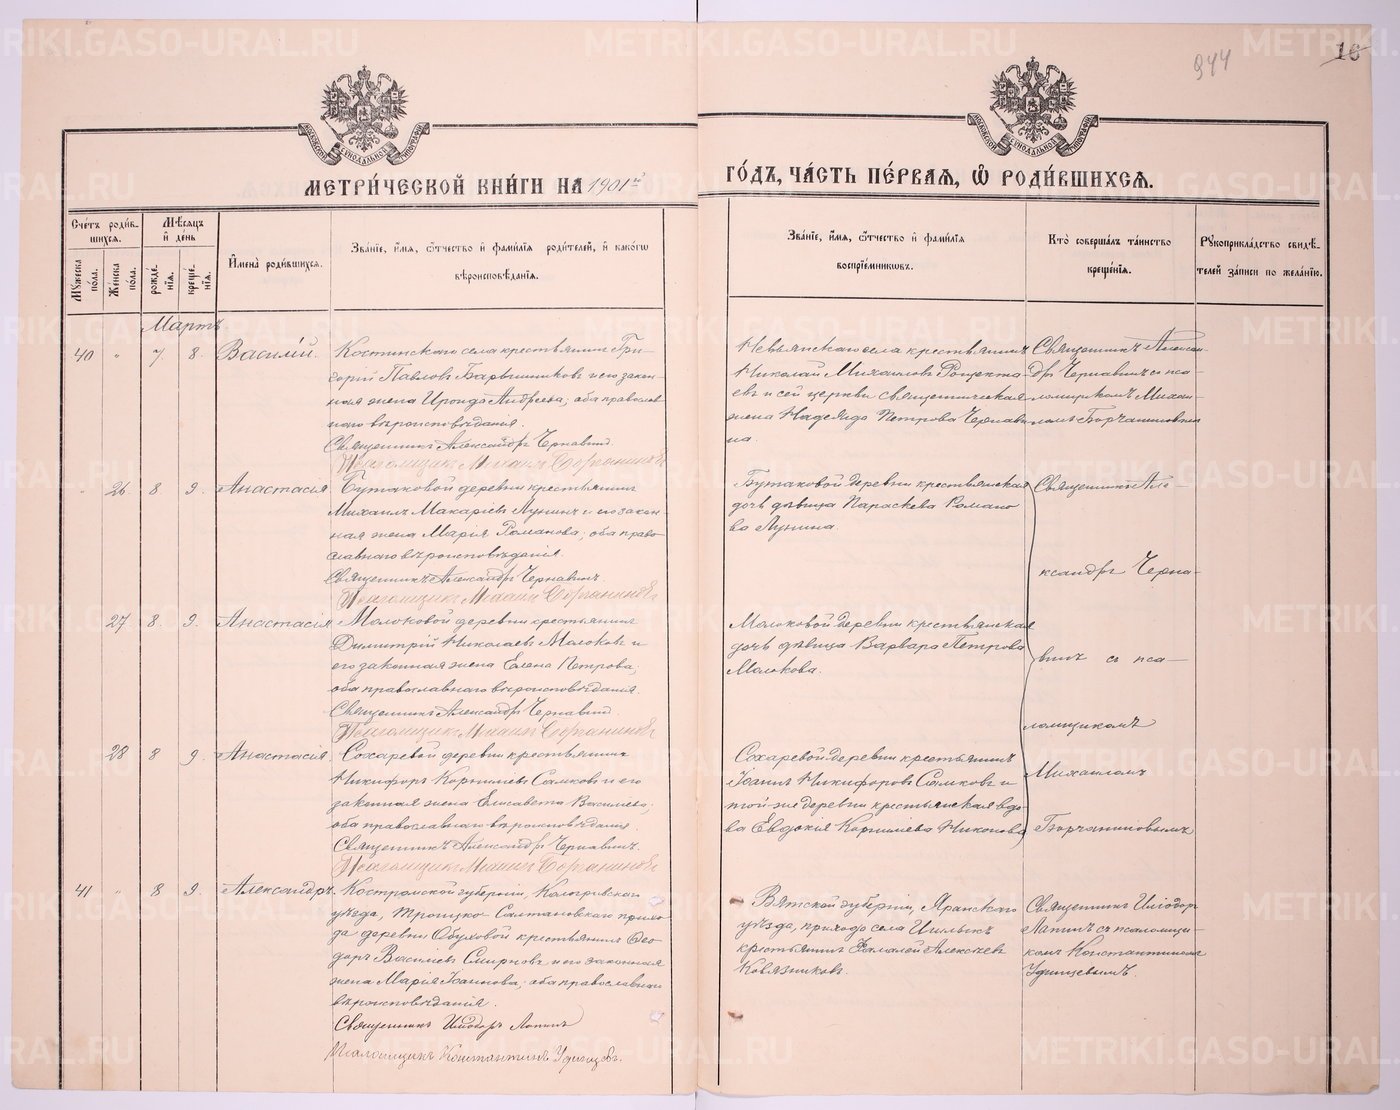 METRIKI.GASO-URAL.RU
944
16
МЕТРИ́ЧЕСКОЙ КНИ́ГИ НА 1901й
ГО́ДЪ, ЧА́СТЬ ПЕ́РВАѦ, Ѽ РОДИ́ВШИХСѦ.
Сче́тъ роди́в-
шихсѧ.
Мѣ́сѧцъ
и҆ де́нь
Мꙋ́жеска по́ла.
Же́нска по́ла.
рожде́-
нїѧ.
креще́-
нїѧ.
И҆мена̀ роди́вшихсѧ.
Зва́нїе, и҆́мѧ, ѻ҆́тчество и҆ фами́лїѧ роди́телей, и҆ како́гѡ
вѣроисповѣ́данїѧ.
Зва́нїе, и҆́мѧ, ѻ҆́тчество и҆ фами́лїѧ
воспрїе́мниковъ.
Кто̀ соверша́лъ та́инство
креще́нїѧ.
Рꙋкоприкла́дство свидѣ́-
телей за́писи по жела́нїю.
Мартъ
40 " 7. 8. Василій.
Костинскаго села крестьянинъ Гри-
горій Павловъ Барышниковъ и его закон-
ная жена Ироида Андреева, оба православ-
наго вѣроисповѣданія.
Священникъ Александръ Чернавинъ.
Псаломщикъ Михаилъ Борчаниновъ
Невьянскаго села крестьянинъ
Николай Михаиловъ
евъ и сей церкви священническая
жена Надежда Петрова Чернави-
на.
Священникъ Алексан-
дръ Чернавинъ съ пса-
ломщикомъ Михаи-
ломъ Борчаниновымъ
" 26 8. 9. Анастасія
Бутаковой деревни крестьянинъ
Михаилъ Макаріевъ Лунинъ и его закон-
ная жена Марія Романова, оба право-
славнаго вѣроисповѣданія.
Священникъ Александръ Чернавинъ.
Псаломщикъ Михаилъ Борчаниновъ
Бутаковой деревни крестьянская
дочь дѣвица Параскева Романо
ва Лунина.
Священникъ Але-
ксандръ Черна-
винъ съ пса-
ломщикомъ
Михаиломъ
Борчаниновымъ
27 8. 9. Анастасія
Молоковой деревни крестьянинъ
Димитрій Николаевъ Молоковъ и
его законная жена Елена Петрова,
оба православнаго вѣроисповѣданія.
Священникъ Александръ Чернавинъ.
Псаломщикъ Михаилъ Борчаниновъ
Молоковой деревни крестьянская
дочь дѣвица Варвара Петрова
Молокова.
28 8 9. Анастасія
Сохаревой деревни крестьянинъ
Никифоръ Корниліевъ Самковъ и его
законная жена Елисавета Васильева,
оба православнаго вѣроисповѣданія.
Священникъ Александръ Чернавинъ.
Псаломщикъ Михаилъ Борчаниновъ
Сохаревой деревни крестьянинъ
Іоаннъ Никифоровъ Самковъ и
той-же деревни крестьянская вдо-
ва Евдокія Корниліева Никонова
41 " 8 9. Александръ
Костромской губерніи, Кологривскаго
уѣзда, Троицко-Салтановскаго прихо-
да деревни Обуховой крестьянинъ Ѳео-
доръ Васильевъ Смирновъ и его законная
жена Марія Іоаннова, оба православнаго
вѣроисповѣданія.
Священникъ Иліодоръ Лапинъ
Псаломщикъ Константинъ Удинцевъ.
Вятской губерніи, Яранскаго
уѣзда, прихода села
крестьянинъ Фалалей Алексѣевъ
Ковязниковъ.
Священникъ Иліодоръ
Лапинъ съ псаломщи-
комъ Константиномъ
Удинцевымъ.